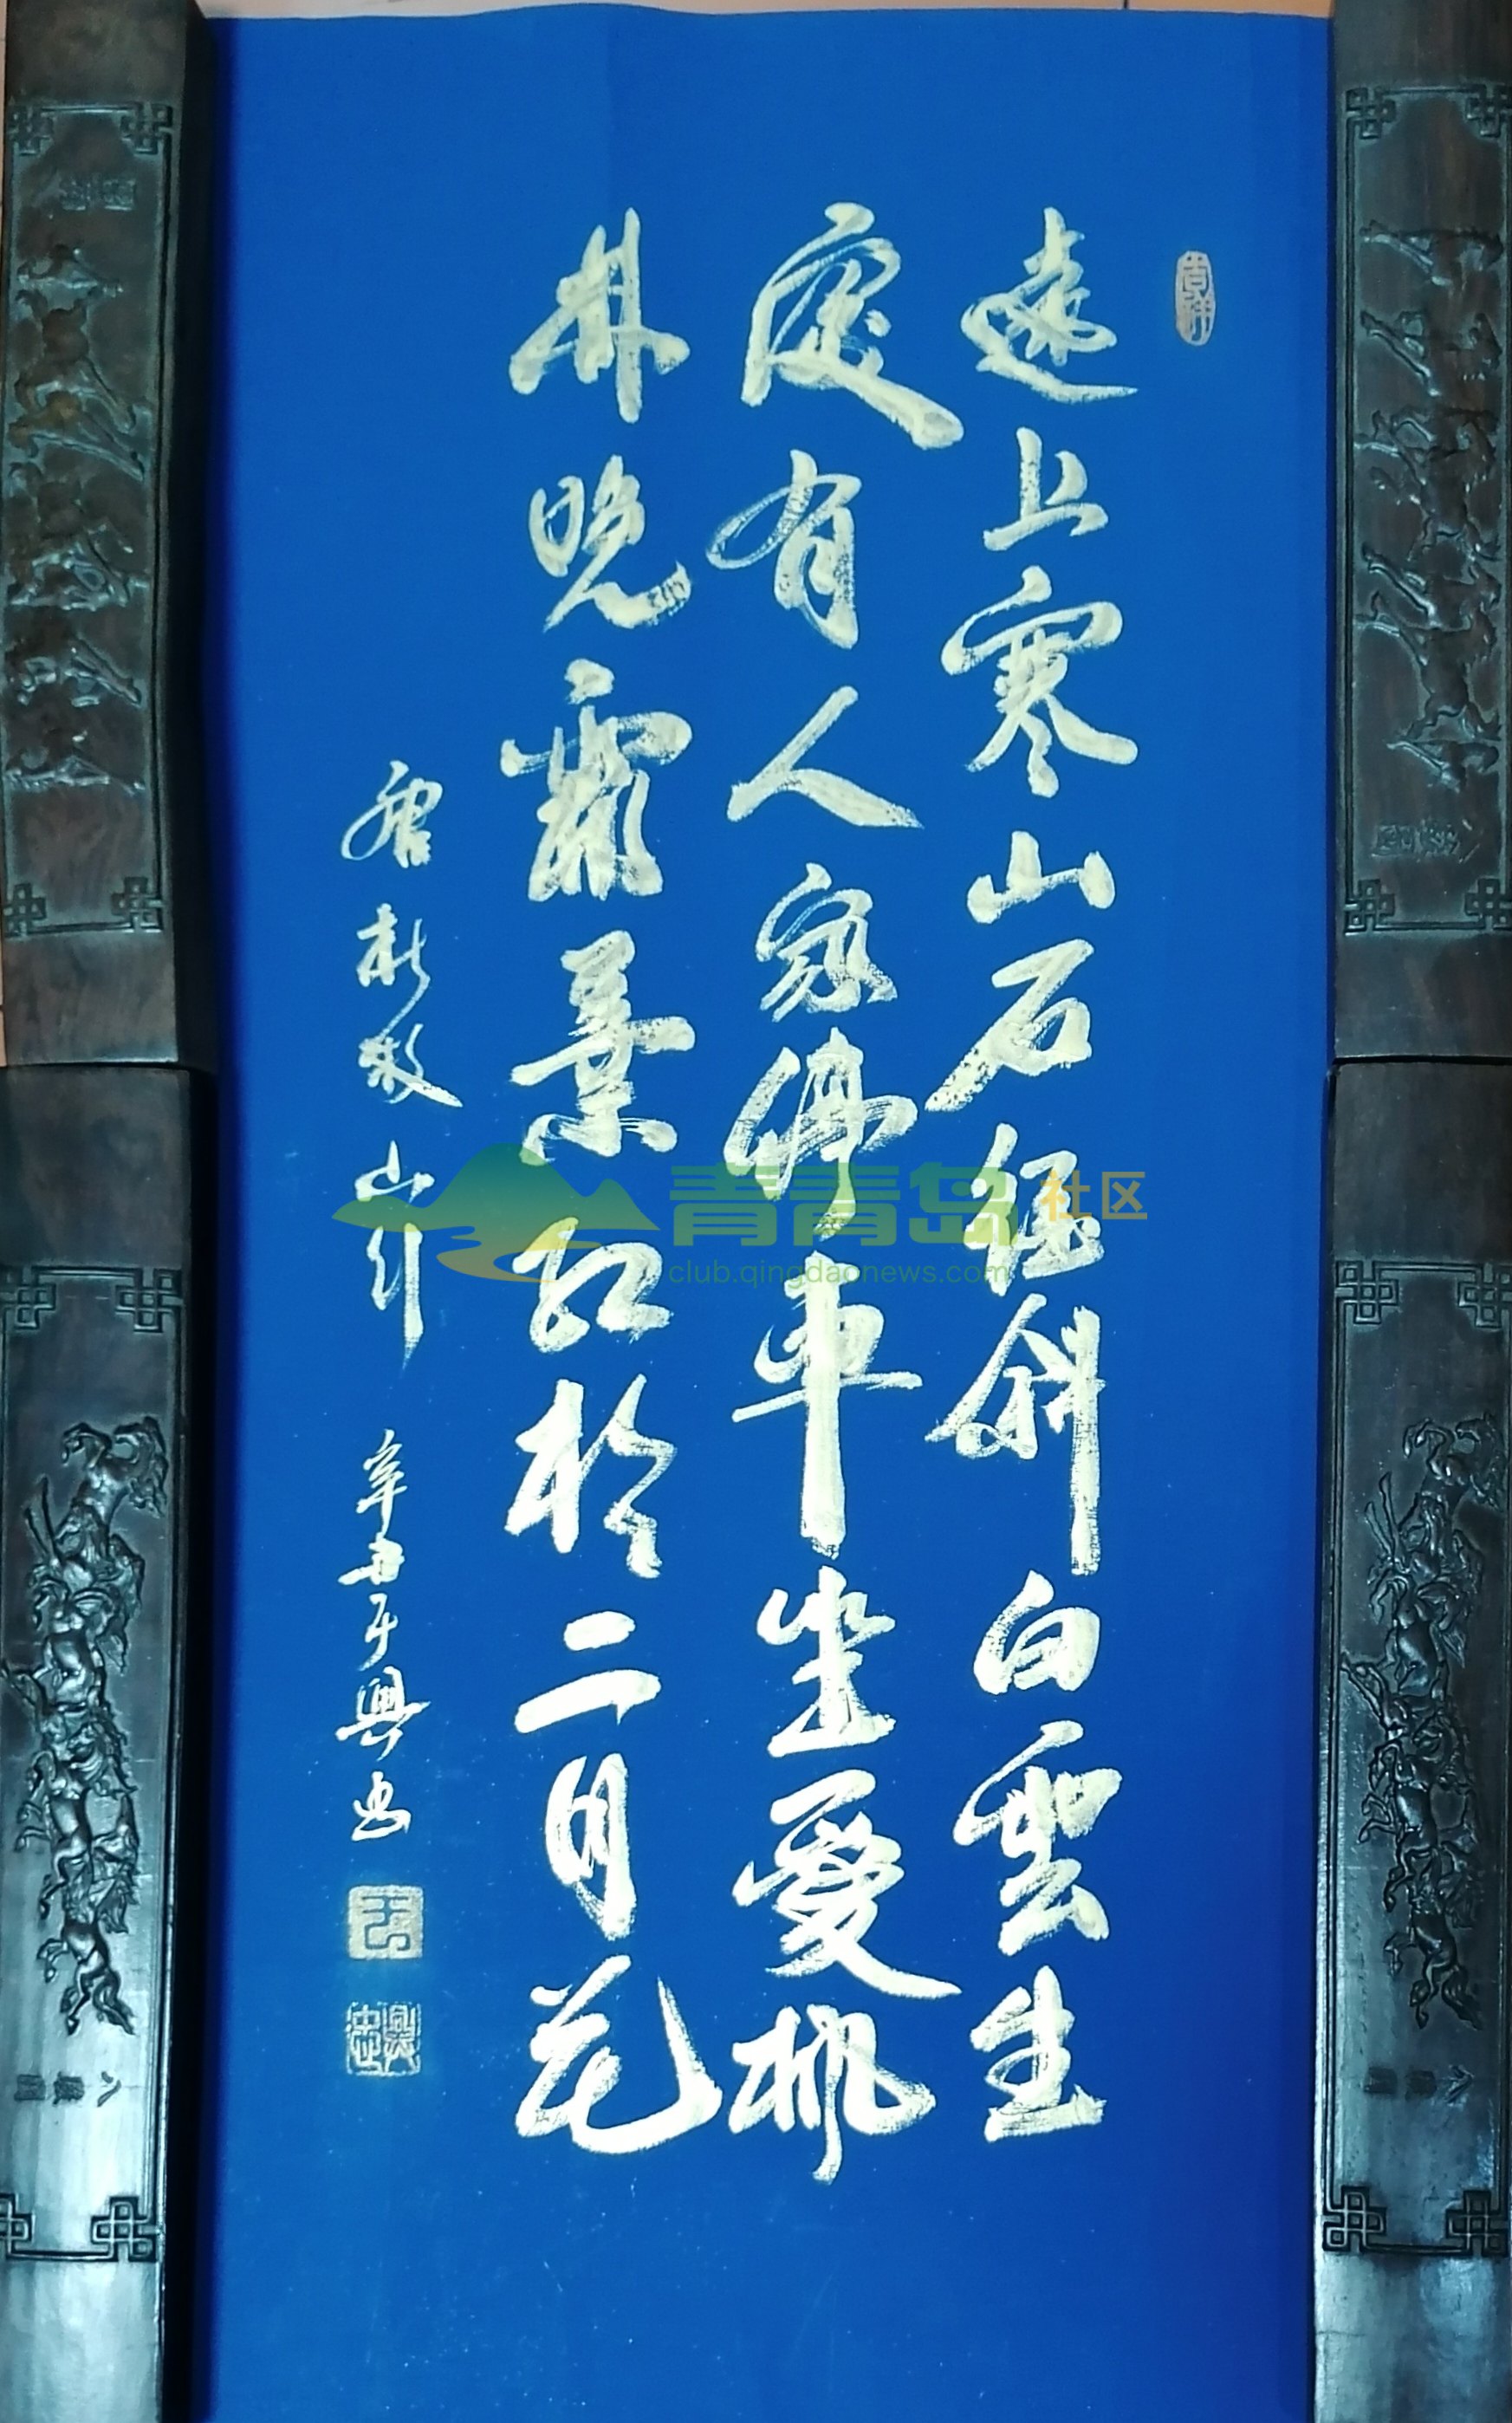 吉祥
遠上寒山石徑斜白雲生
處有人家停車坐愛楓
林晚霜葉紅於二月花
唐杜牧山行 辛丑于興忠
興忠
青青岛社区
club.qingdaonews.com